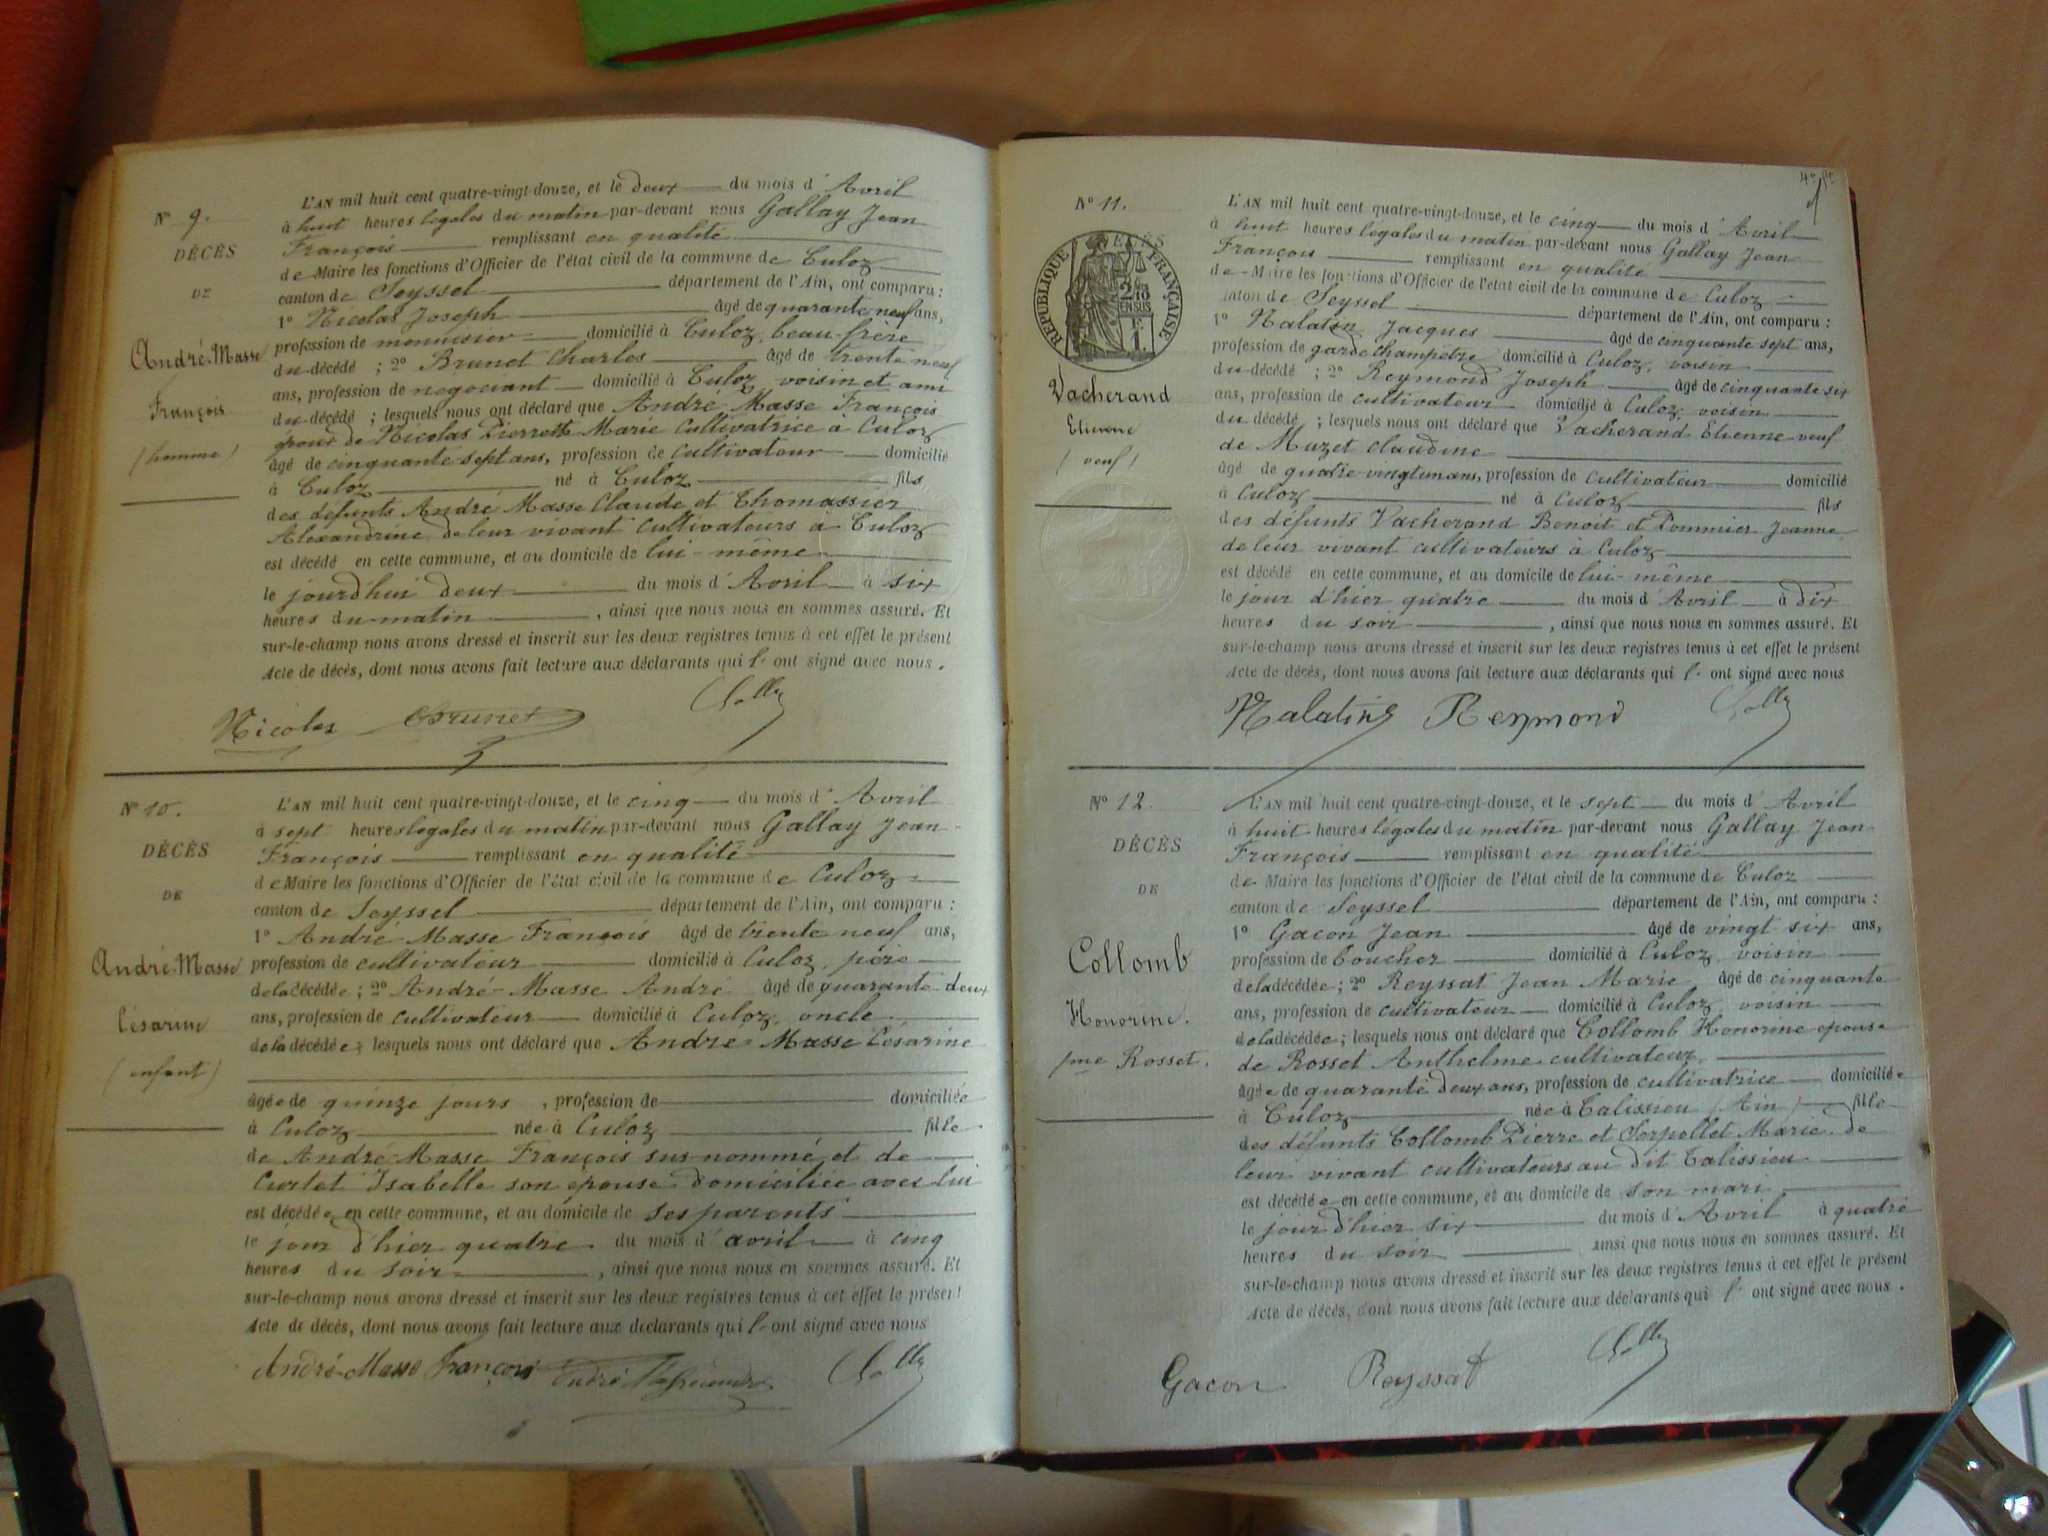 N° 9.
DÉCÈS
DE
André-Masse
François
(homme)
L'AN mil huit cent quatre-vingt-douze, et le deux du mois d'Avril
à huit heures légales du matin par-devant nous Gallay Jean
François remplissant en qualité
de Maire les fonctions d'Officier de l'état civil de la commune de Culoz
canton de Seyssel département de l'Ain, ont comparu :
1° Nicolas Joseph âgé de quarante neuf ans,
profession de menuisier domicilié à Culoz, beau-frère
du décédé ; 2° Brunet Charles âgé de trente neuf
ans, profession de négociant domicilié à Culoz voisin et ami
du décédé ; lesquels nous ont déclaré que André Masse François
époux de Nicolas Pierrette Marie Cultivatrice à Culoz
âgé de cinquante sept ans, profession de Cultivateur domicilié
à Culoz né à Culoz fils
des défunts André Masse Claude et Thomassier
Alexandrine de leur vivant cultivateurs à Culoz
est décédé en cette commune, et au domicile de lui-même
le jourd'hui deux du mois d'Avril à six
heures du matin, ainsi que nous nous en sommes assuré. Et
sur-le-champ nous avons dressé et inscrit sur les deux registres tenus à cet effet le présent
Acte de décès, dont nous avons fait lecture aux déclarants qui l'ont signé avec nous.
Nicolas Brunet
N° 10.
DÉCÈS
DE
André-Masse
Césarine
(enfant)
L'AN mil huit cent quatre-vingt-douze, et le cinq du mois d'Avril
à sept heures légales du matin par-devant nous Gallay Jean
François remplissant en qualité
de Maire les fonctions d'Officier de l'état civil de la commune de Culoz
canton de Seyssel département de l'Ain, ont comparu :
1° André Masse François âgé de trente neuf ans,
profession de cultivateur domicilié à Culoz, père
de la décédée ; 2° André-Masse André âgé de quarante deux
ans, profession de cultivateur domicilié à Culoz, oncle
de la décédée ; lesquels nous ont déclaré que André Masse Césarine
âgée de quinze jours, profession de domiciliée
à Culoz née à Culoz fille
de André-Masse François sus-nommé et de
Curlet Isabelle son épouse domiciliée avec lui
est décédée en cette commune, et au domicile de ses parents
le jour d'hier quatre du mois d'avril à cinq
heures du soir, ainsi que nous nous en sommes assuré. Et
sur-le-champ nous avons dressé et inscrit sur les deux registres tenus à cet effet le présent
Acte de décès, dont nous avons fait lecture aux déclarants qui l'ont signé avec nous
André-Masse François
N° 11.
RÉPUBLIQUE FRANÇAISE
DÉCÈS
2/10 EN SUS
F.
1.
Vacherand
Etienne
(veuf)
L'AN mil huit cent quatre-vingt-douze, et le cinq du mois d'Avril
à huit heures légales du matin par-devant nous Gallay Jean
François remplissant en qualité
de Maire les fonctions d'Officier de l'état civil de la commune de Culoz
canton de Seyssel département de l'Ain, ont comparu :
1° Nalatin Jacques âgé de cinquante sept ans,
profession de garde champêtre domicilié à Culoz, voisin
du décédé ; 2° Reymond Joseph âgé de cinquante six
ans, profession de cultivateur domicilié à Culoz voisin
du décédé ; lesquels nous ont déclaré que Vacherand Etienne veuf
de Muzet Claudine
âgé de quatre vingt un ans, profession de cultivateur domicilié
à Culoz né à Culoz fils
des défunts Vacherand Benoit et Pommier Jeanne
de leur vivant cultivateurs à Culoz
est décédé en cette commune, et au domicile de lui-même
le jour d'hier quatre du mois d'Avril à dix
heures du soir, ainsi que nous nous en sommes assuré. Et
sur-le-champ nous avons dressé et inscrit sur les deux registres tenus à cet effet le présent
Acte de décès, dont nous avons fait lecture aux déclarants qui l'ont signé avec nous
Nalatin Reymond
N° 12.
DÉCÈS
DE
Collomb
Honorine.
fme Rosset.
L'AN mil huit cent quatre-vingt-douze, et le sept du mois d'Avril
à huit heures légales du matin par-devant nous Gallay Jean
François remplissant en qualité
de Maire les fonctions d'Officier de l'état civil de la commune de Culoz
canton de Seyssel département de l'Ain, ont comparu :
1° Gacon Jean âgé de vingt six ans,
profession de boucher domicilié à Culoz, voisin
de la décédée ; 2° Reyssat Jean Marie âgé de cinquante
ans, profession de cultivateur domicilié à Culoz, voisin
de la décédée ; lesquels nous ont déclaré que Collomb Honorine épouse
de Rosset Anthelme cultivateur,
âgée de quarante deux ans, profession de cultivatrice domiciliée
à Culoz née à Talissieu (Ain) fille
des défunts Collomb Pierre et Serpollet Marie de
leur vivant cultivateurs au dit Talissieu
est décédée en cette commune, et au domicile de son mari
le jour d'hier six du mois d'Avril à quatre
heures du soir ainsi que nous nous en sommes assuré. Et
sur-le-champ nous avons dressé et inscrit sur les deux registres tenus à cet effet le présent
Acte de décès, dont nous avons fait lecture aux déclarants qui l'ont signé avec nous.
Gacon Reyssat